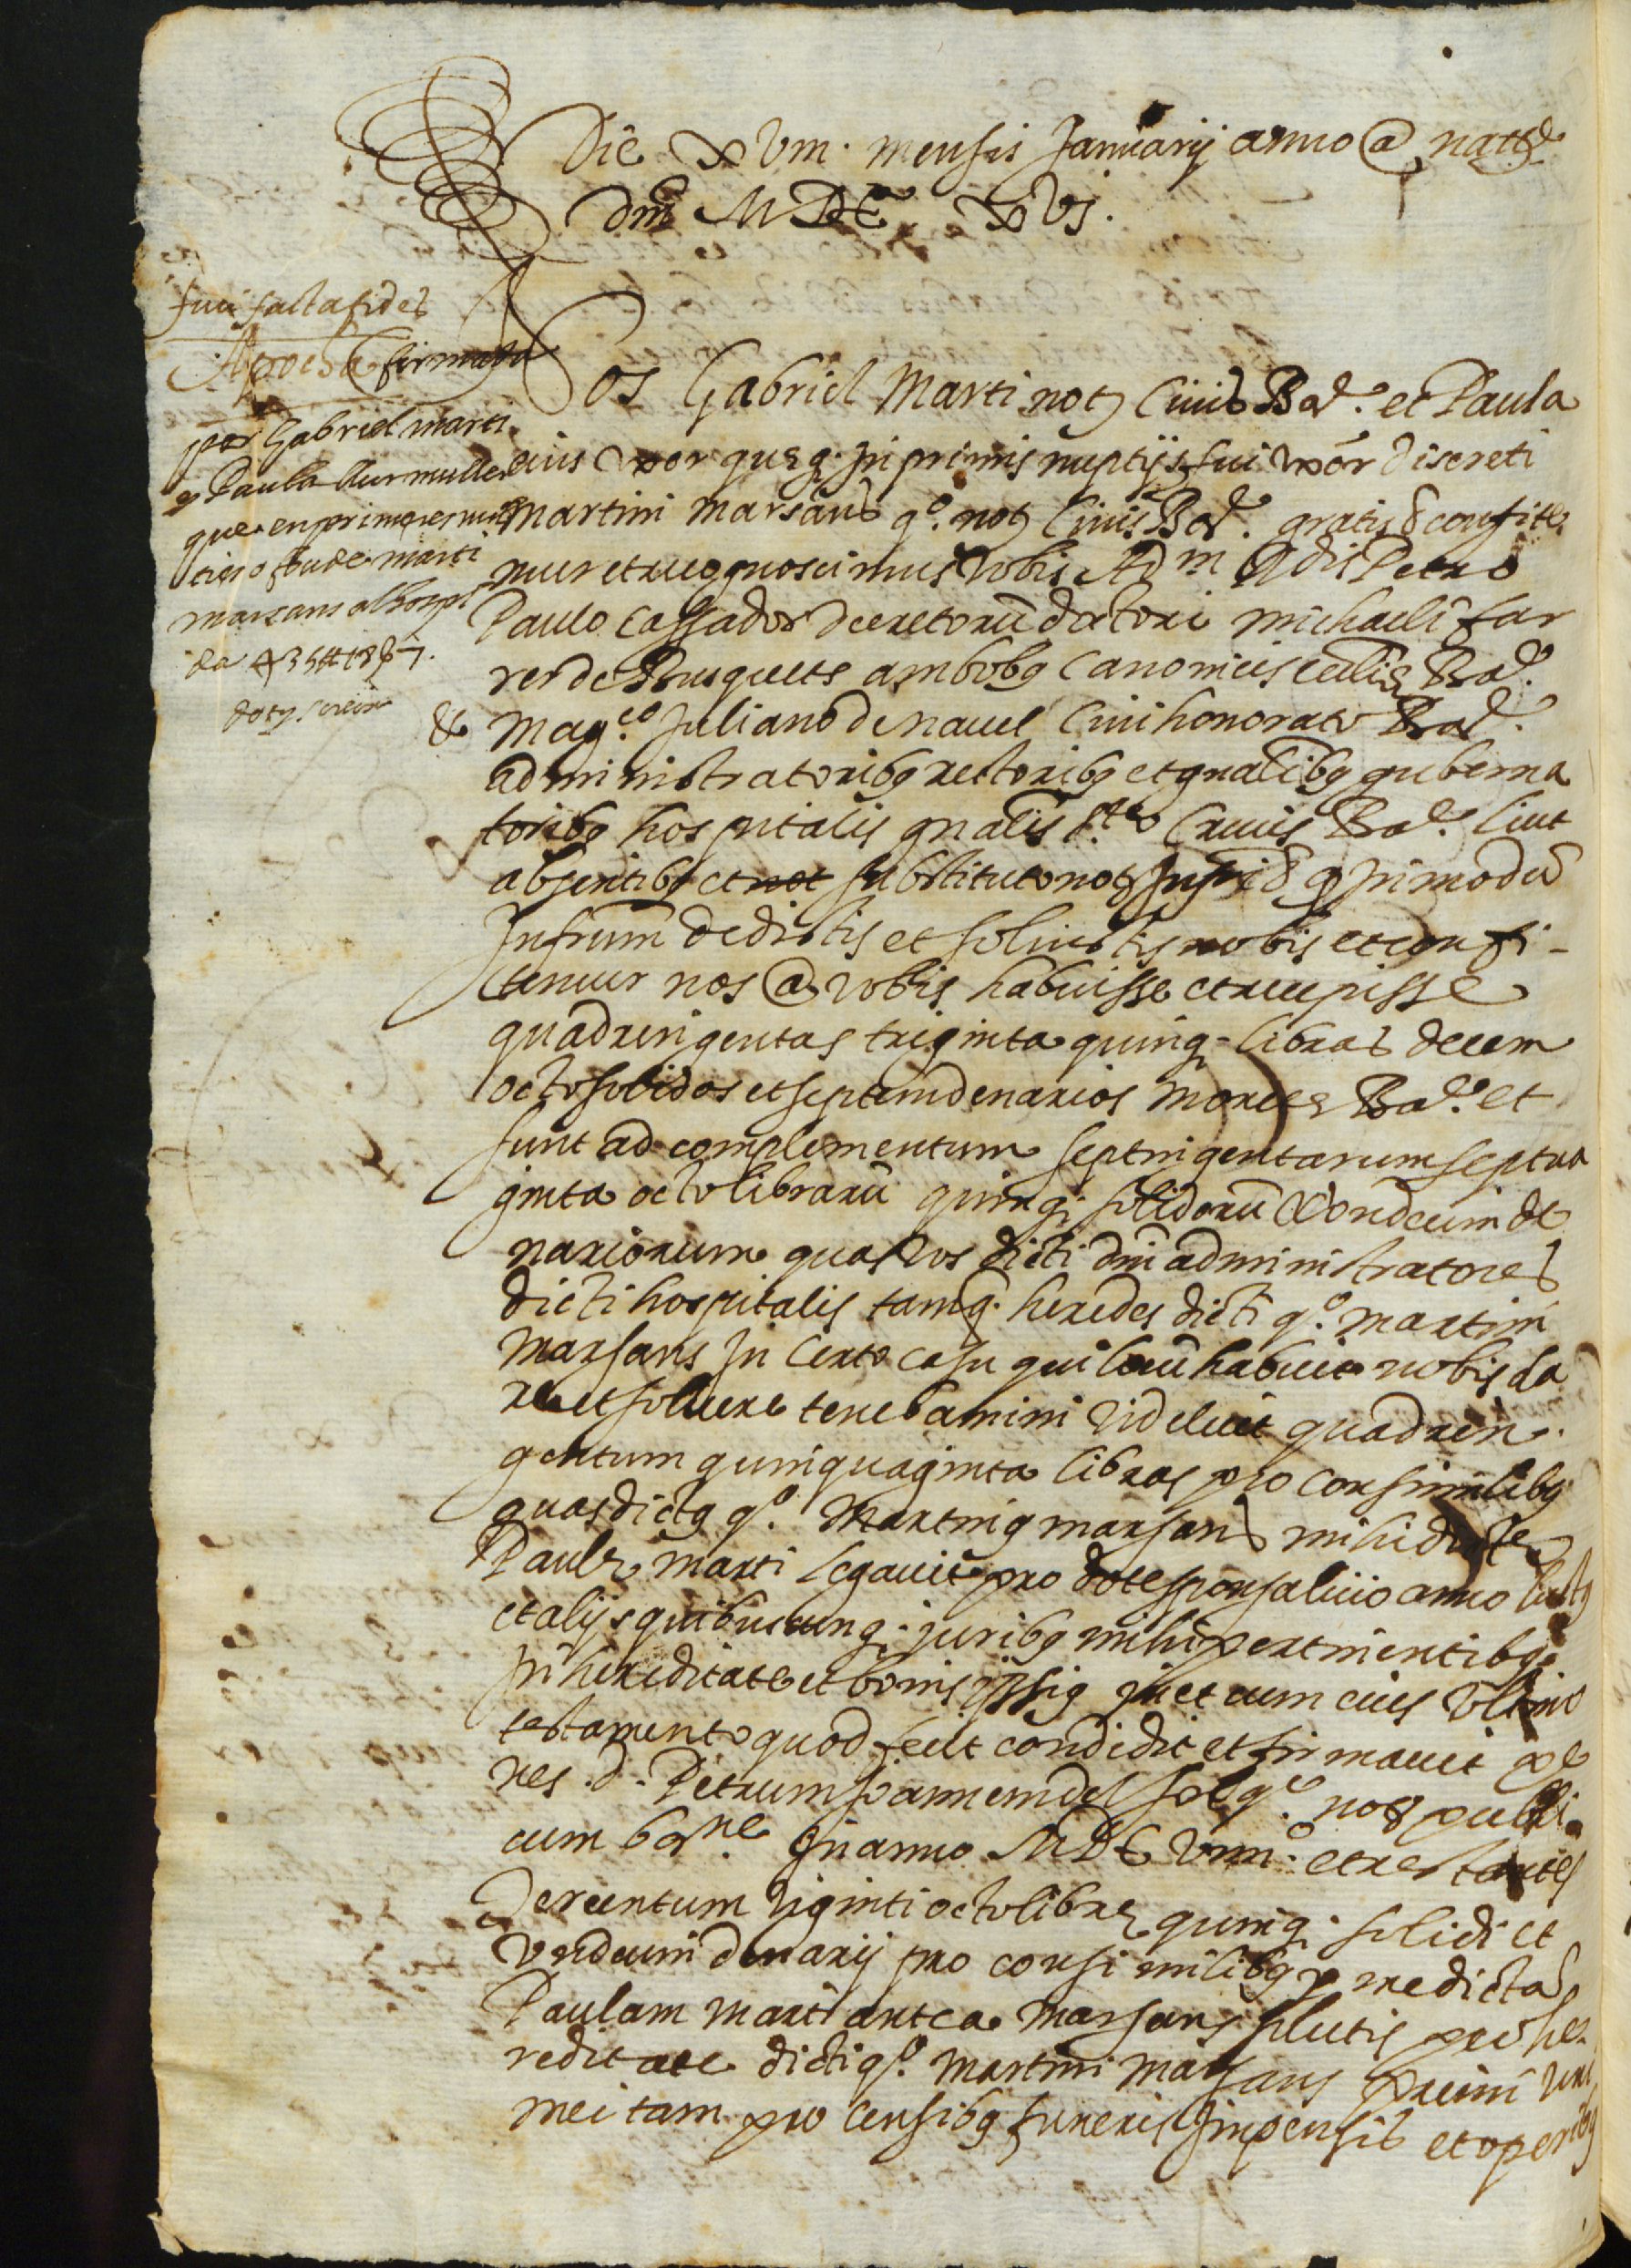 Die XVIIII mensis Januarij anno a nattē
dni MDC XVI.
fuit facta fides
Apocha firmada
per Gabriel marti
y Paula sur muller
que en primeres nup
cies o fou de marti
marsans al hospl
da 435 ₶ 18 ß 7.
NOS Gabriel Marti not. civis Bar. et Paula
eius uxor queq. in primis nuptijs fui uxor discreti
Martini Marsans qº. not. civis Bar. gratis & confite
mur et recognoscimus vobis Adm Rdis Petro
Paulo Cassador decretorũ doctori michaeli far
rer de Busquets ambobg canonicis eccliæ Bar.
& Magco. Juliano de Navel civi honorato Bar.
administratoribg rectoribg et gnalibg guberna
toribg hospitalis gnalis Ste Crucis Bar. licet
absentibg et not substituto not. infrio & q in modũ
infrum dedistis et solvistis nobis et confi-
temur nos a vobis habuisse et recepisse
quadringentas triginta quinq. libras decem
octo solidos et septem denarios monetę Bar. et
sunt ad complementum septingentarum septua
ginta octo librarũ quinq. solidorũ & undecim de
nariorum quas vos dicti dni administratores
dicti hospitalis tamq. heredes dicti qº. martini
Marsans in certo casu qui locũ habuit nobis da
re et solvere tenebamini videlicet quadrin
gentum quinquaginta libras pro consimilibg
quas dictg qº. Marting marsans mihi dicte
Paulę marti legavit pro dote sponsalicio anno luctg
et alijs quibuscunq. juribg mihi pertinentibg
in hereditate et bonis ipsig in et cum eius ultimo
testamento quod fecit condidit et firmavit pe
nes .d. Petrum Joannem del Sol qº. not. publi
cum barne. in anno MDC VIIII. et restantes
tercentum viginti octo librę quinq. solidi et
undecim denarij pro consimilibg p me dictã
Paulam marti antea Marsans solutis pro he
reditate dicti qº. Martini Marsans primi viri
mei tam pro censibg funeris impensis et operibg